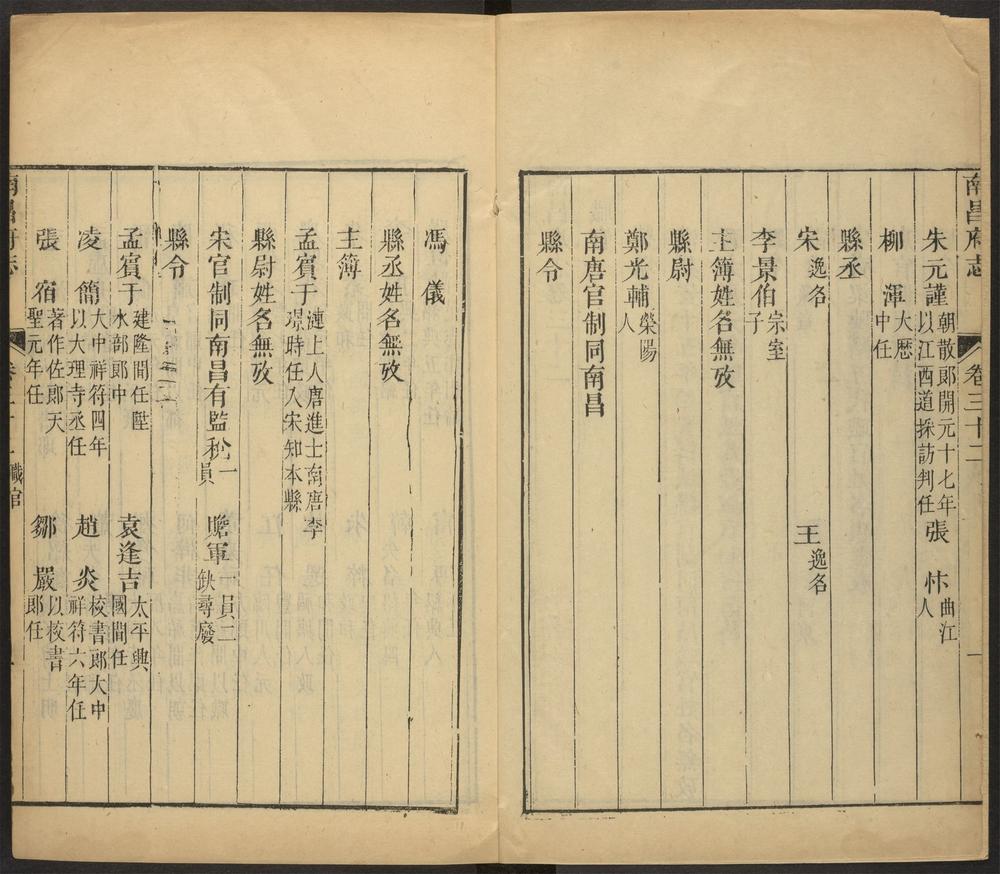 南昌府志 卷三十二
朱元謹 朝散郎開元十七年以江西道採訪判任 張忭 曲江人
柳渾 大歷中任
縣丞
宋 逸名 王 逸名
李景伯 宗室子
主簿姓名無攷
縣尉
鄭光輔 滎陽人
南唐官制同南昌
縣令
馮儀
縣丞姓名無攷
主簿
孟賓于 漣上人唐進士南唐李璟時任入宋知本縣
縣尉姓名無攷
宋官制同南昌有監稅一員 贍軍員二缺尋廢
縣令
孟賓于 建隆間任陞水部郎中 袁逢吉 太平興國間任
凌簡 大中祥符四年以大理寺丞任 趙炎 校書郎大中祥符六年任
張宿 著作佐郎天聖元年任 鄒嚴 以校書郎任
南昌府志 職官